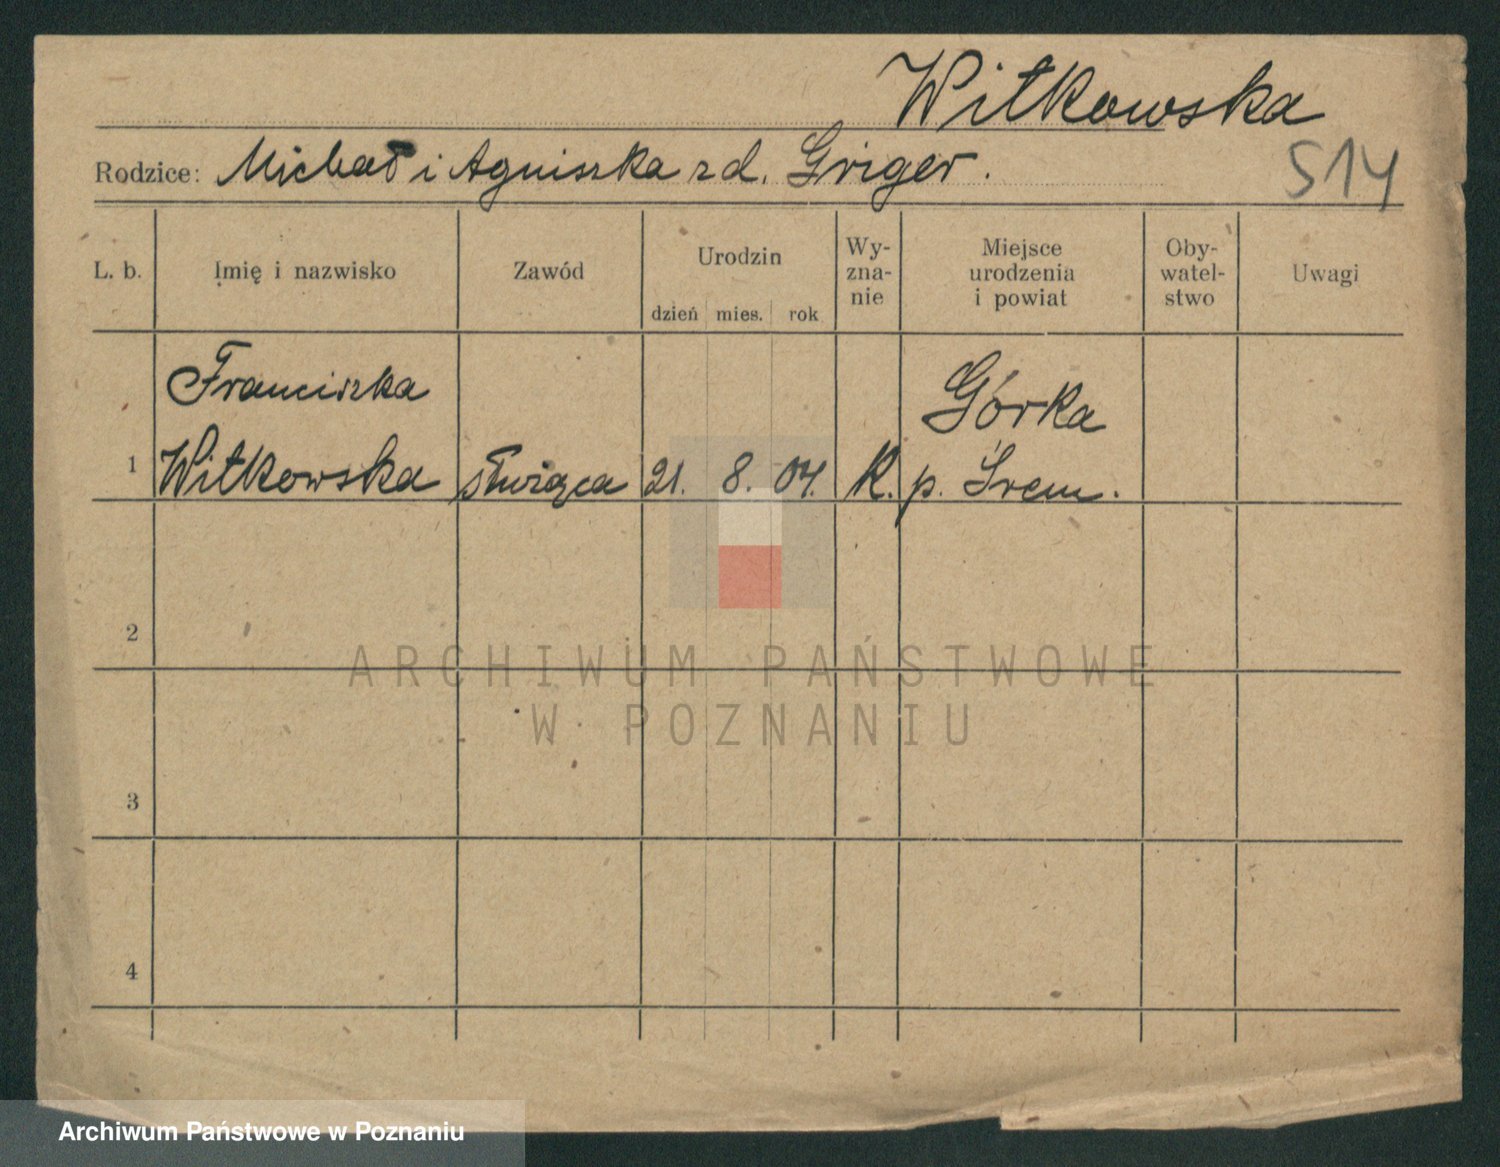 Witkowska
Rodzice: Michał i Agniszka zd. Griger.
514
L. b.
Imię i nazwisko
Zawód
Urodzin
dzień mies. rok
Wy-
zna-
nie
Miejsce
urodzenia
i powiat
Oby-
watel-
stwo
Uwagi
Franciszka
Górka
1 Witkowska służąca 21. 8. 04. K. p. Śrem.
2
ARCHIWUM PAŃSTWOWE
W POZNANIU
3
4
Archiwum Państwowe w Poznaniu